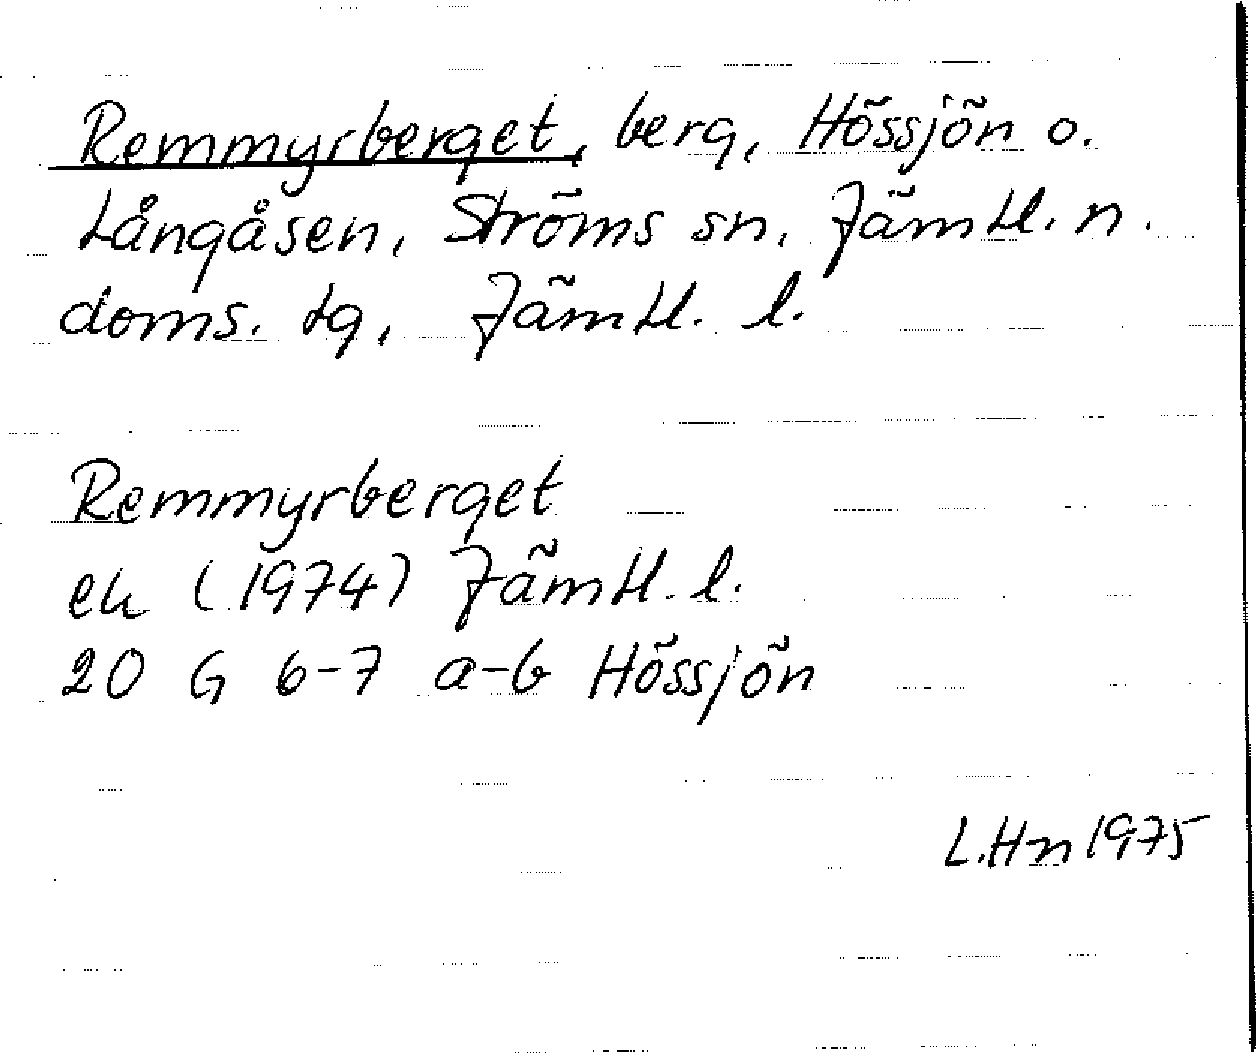 Remmyrberget, berg, Hössjön o.
Långåsen, Ströms sn, Jämtl. n.
doms. tg, Jämtl. l.
Remmyrberget
ek (1974) Jämtl. l.
20 G 6-7 a-b Hössjön
L.Hn 1975